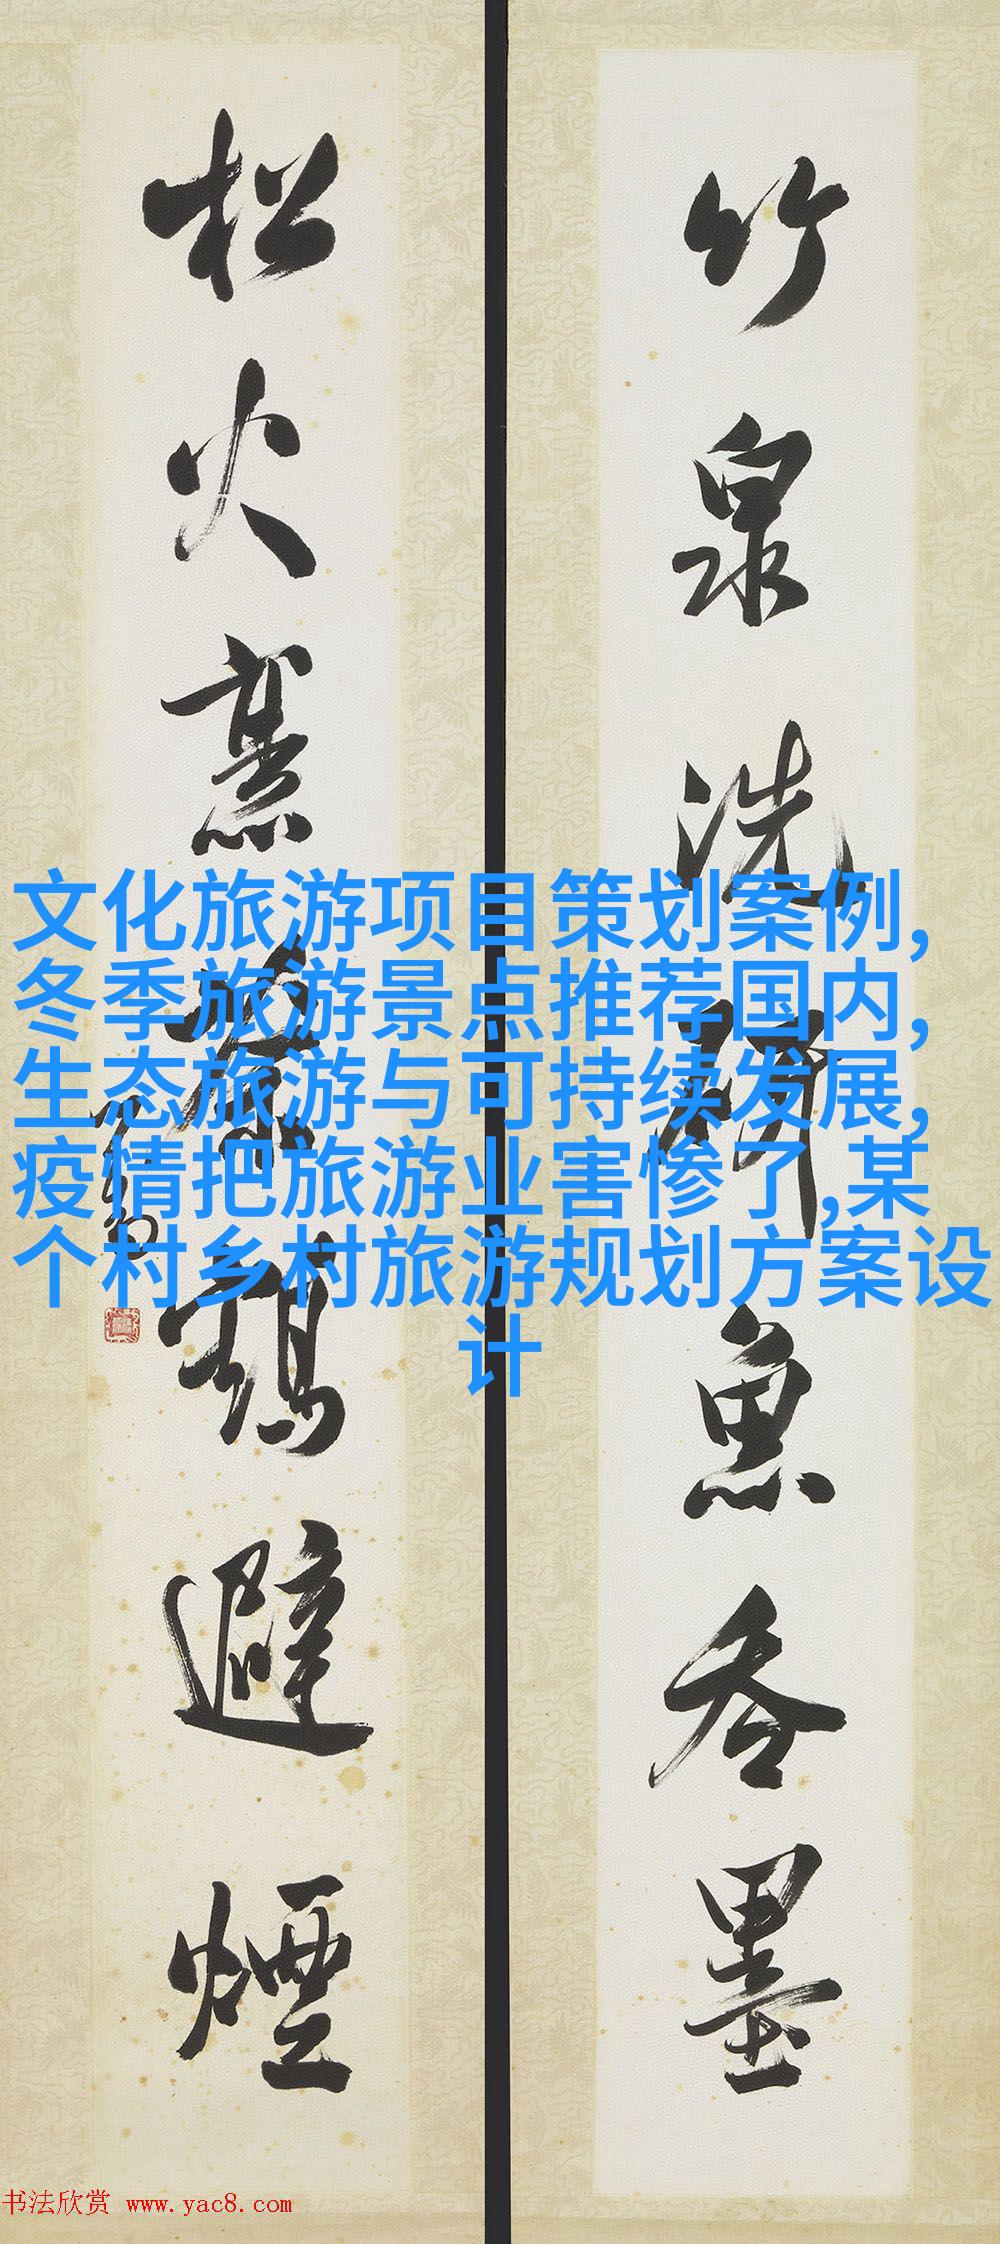 竹泉洗研魚吞墨
松火烹茶鶴避煙
文化旅游项目策划案例,
冬季旅游景点推荐国内,
生态旅游与可持续发展,
疫情把旅游业害惨了,某
个村乡村旅游规划方案设
计
书法欣赏 www.yac8.com